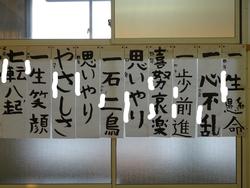 一生懸命
一心不乱
一歩前進
喜努哀楽
思いやり
一石二鳥
思いやり
やさしさ
一生笑顔
七転八起